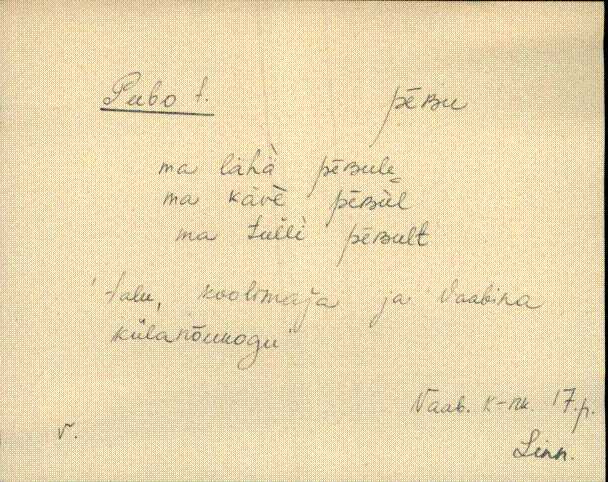 Peebo t. pēʙu
ma lähä pēʙule
ma käve pēʙul
ma tulli pēʙult
'talu, koolimaja ja Vaabina
külanõukogu'
Vaab. k-nk. 17. p.
v.
Linn.